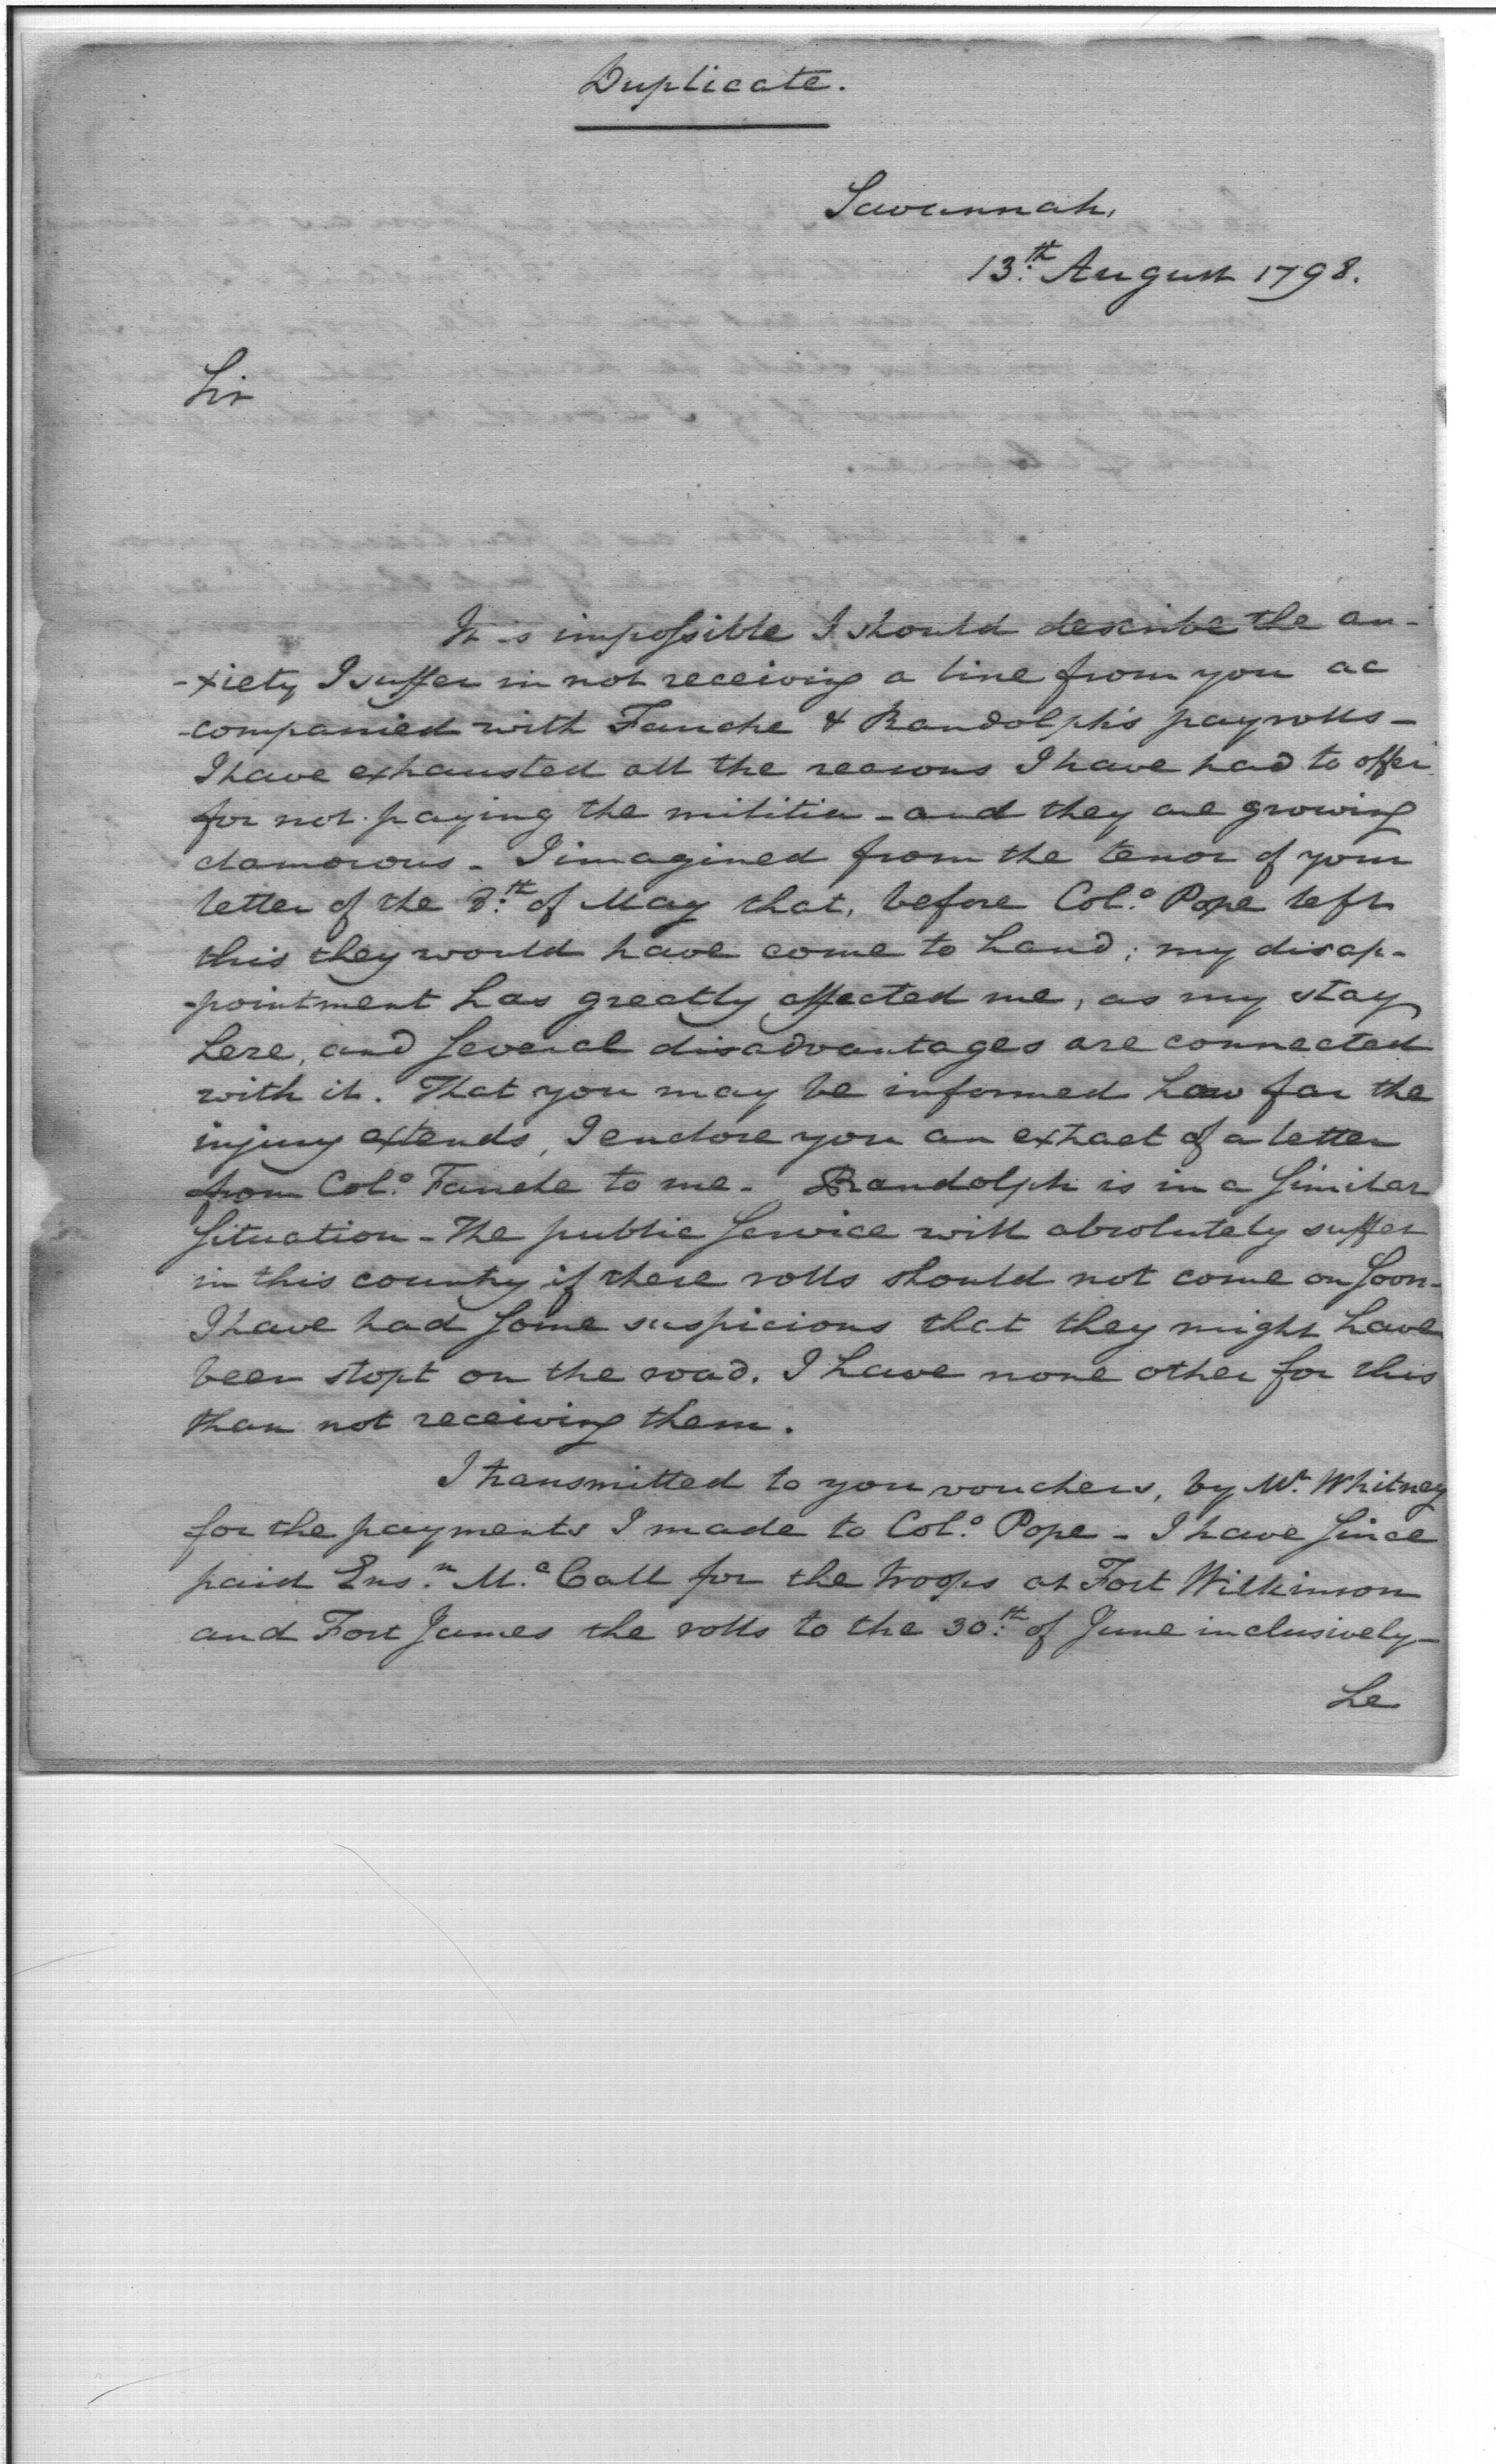 Duplicate.
Savannah,
13.th August 1798.
Sir
It is impossible I should describe the an-
-xiety I suffer in not receiving a line from you ac
-companied with Fauche & Randolph's payrolls -
I have exhausted all the reasons I have had to offer
for not paying the militia - and they are growing
clamorous - I imagined from the tenor of your
letter of the 8.th of May that, before Col.o Pope left
this they would have come to hand; my disap-
-pointment has greatly affected me, as my stay
here, and several disadvantages are connected
with it. That you may be informed how far the
injury extends, I enclose you an extract of a letter
from Col.o Fauche to me - Randolph is in a similar
situation - The public service will absolutely suffer
in this country if these rolls should not come on soon -
I have had some suspicions that they might have
been stopt on the road. I have none other for this
than not receiving them.
I transmitted to you vouchers, by Mr. Whitney
for the payments I made to Col.o Pope - I have since
paid Ens.n M.c Call for the troops at Fort Wilkinson
and Fort James the rolls to the 30.th of June inclusively -
he